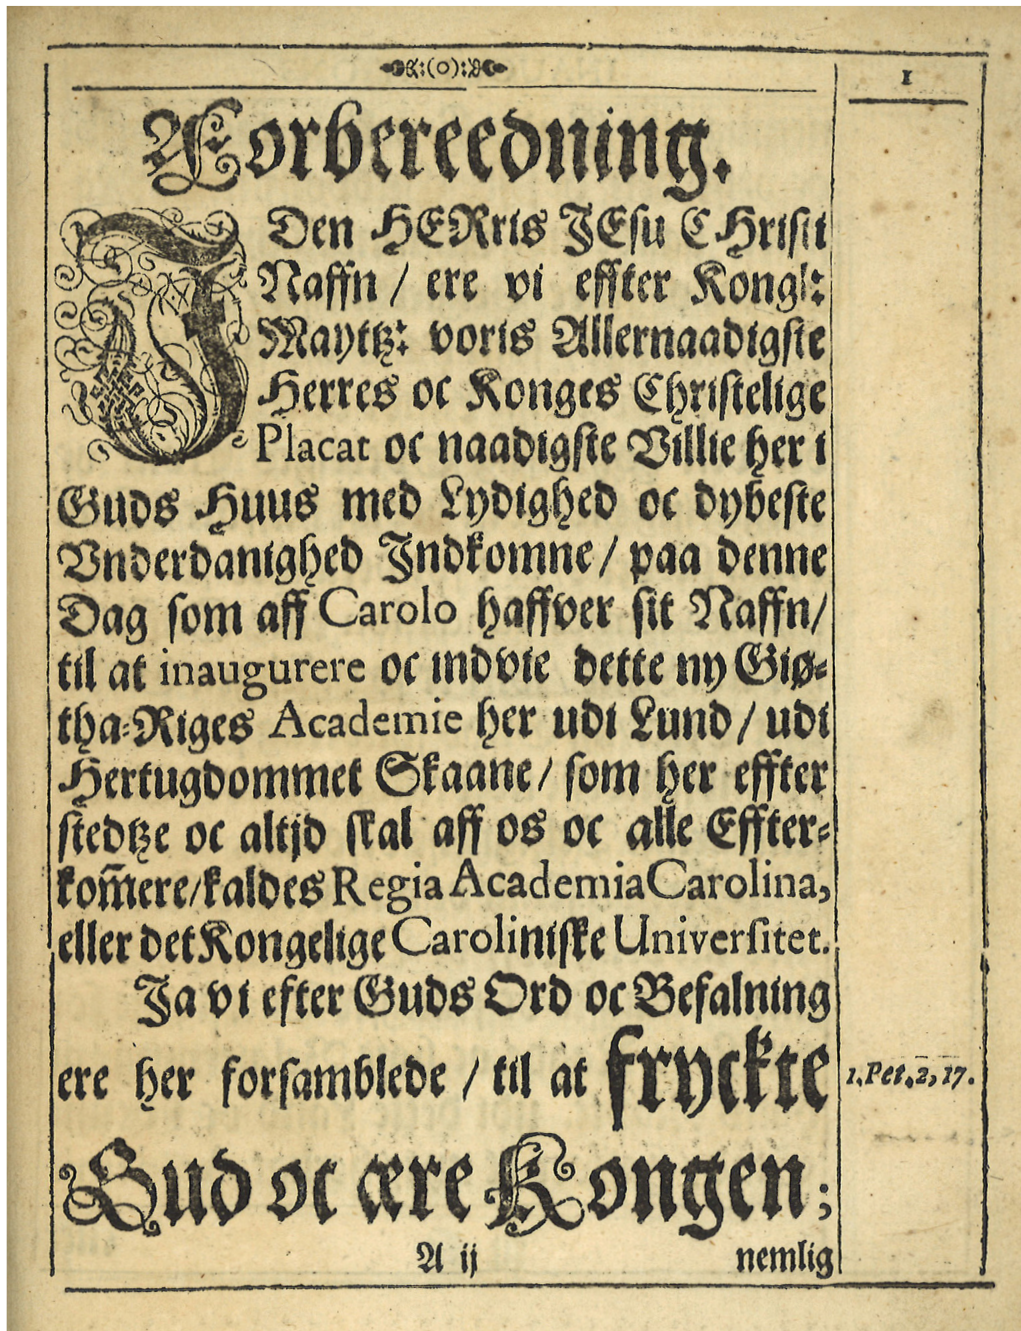 :(o):
1
Forbereedning.
I Den HERris JEsu CHristi
Naffn / ere vi effter Kongl:
Mayttz: voris Allernaadigste
Herres oc Konges Christelige
Placat oc naadigste Villie her i
Guds Huus med Lydighed oc dybeste
Vnderdanighed Indkomne / paa denne
Dag som aff Carolo haffver sit Naffn/
til at inaugurere oc indvie dette ny Giø-
tha-Riges Academie her udi Lund / udi
Hertugdommet Skaane / som her effter
stedtze oc altjd skal aff os oc alle Effter-
kom̅ere/kaldes Regia Academia Carolina,
eller det Kongelige Caroliniske Universitet.
Ja vi efter Guds Ord oc Befalning
ere her forsamblede / til at fryckte
1. Pet. 2, 17.
Gud oc ære Kongen;
A ij
nemlig